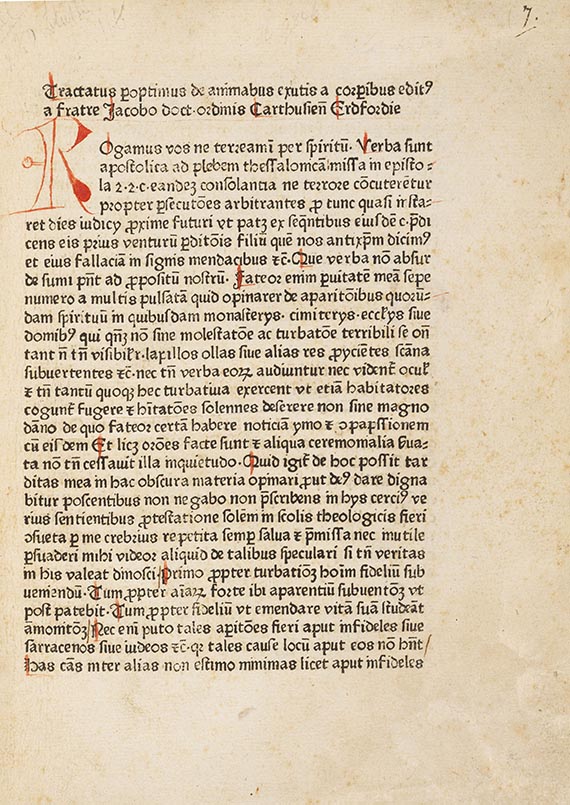 7.
Tractatus ꝑoptimus de animabus exutis a corꝑibus editꝰ
a fratre Jacobo doct· ordinis Carthusien̄ Erdfordie
ROgamus vos ne terreami᷑ per spiritū· Verba sunt
apostolica ad plebem thessalonicā missa in episto⸗
la 2·2·c·eandeꝫ consolantia ne terrore cōcuterētur
propter ꝑsecutōes arbitrantes ꝙ tunc quasi insta⸗
ret dies iudicy ꝓxime futuri vt patꝫ ex seqn̄tibus eiusdē c·p̄di
cens eis prius venturū ꝑditōis filiū quē nos antixp̄m dicimꝰ
et eius fallaciā in signis mendacibus ⁊c̄· Que verba nō absur
de sumi pn̄t ad ꝓpositū nostrū· Fateor enim ꝑuitatē meā sepe
numero a multis pulsatā quid opinarer de aparitōibus quorū⸗
dam spirituū in quibusdam monasterys· cimiterys· eccl̄ys siue
domibꝰ qui qn̄ꝫ nō sine molestatōe ac turbatōe terribili se on̄
tant n̄ tn̄ visibilr̄·lapillos ollas siue alias res ꝓycietes scāna
subuertentes ⁊c̄·nec tn̄ verba eoꝝ audiuntur nec vident᷑ ocul̄
⁊ tn̄ tantū quoqꝫ hec turbatiua exercent vt etiā habitatores
cogunt᷑ fugere ⁊ hītatōes solennes deserere non sine magno
dāno de quo fateor certā habere noticiā ymo ⁊ ɔpassionem
cū eisdem Et licꝫ orōes facte sunt ⁊ aliqua ceremonialia ẜua⸗
ta nō tn̄ cessauit illa inquietudo· Quid igit᷑ de hoc possit tar
ditas mea in hac obscura materia opinari ꝓut deꝰ dare digna
bitur poscentibus non negabo non p̄scribens in hys cerciꝰ ve
rius sentientibus ꝓtestatione solēm in scolis theologicis fieri
ɔsueta ꝑ me crebrius repetita semꝑ salua ⁊ p̄missa nec inutile
ꝑsuaderi mihi videor aliquid de talibus speculari si tn̄ veritas
in his valeat dinosci· Primo ꝓpter turbatiōꝫ hoīm fideliū sub
ueniendū· Tum ꝓpter aīaꝝ forte ibi aparentiū subuentōꝫ vt
post patebit· Tum ꝓpter fideliū vt emendare vitā suā studeāt
amonitōꝫ Nec enī puto tales apitōes fieri aput infideles siue
sarracenos siue iudeos ⁊c̄· qꝛ tales cause locū aput eos nō hn̄t/
Has cās inter alias non estimo minimas licet aput infideles